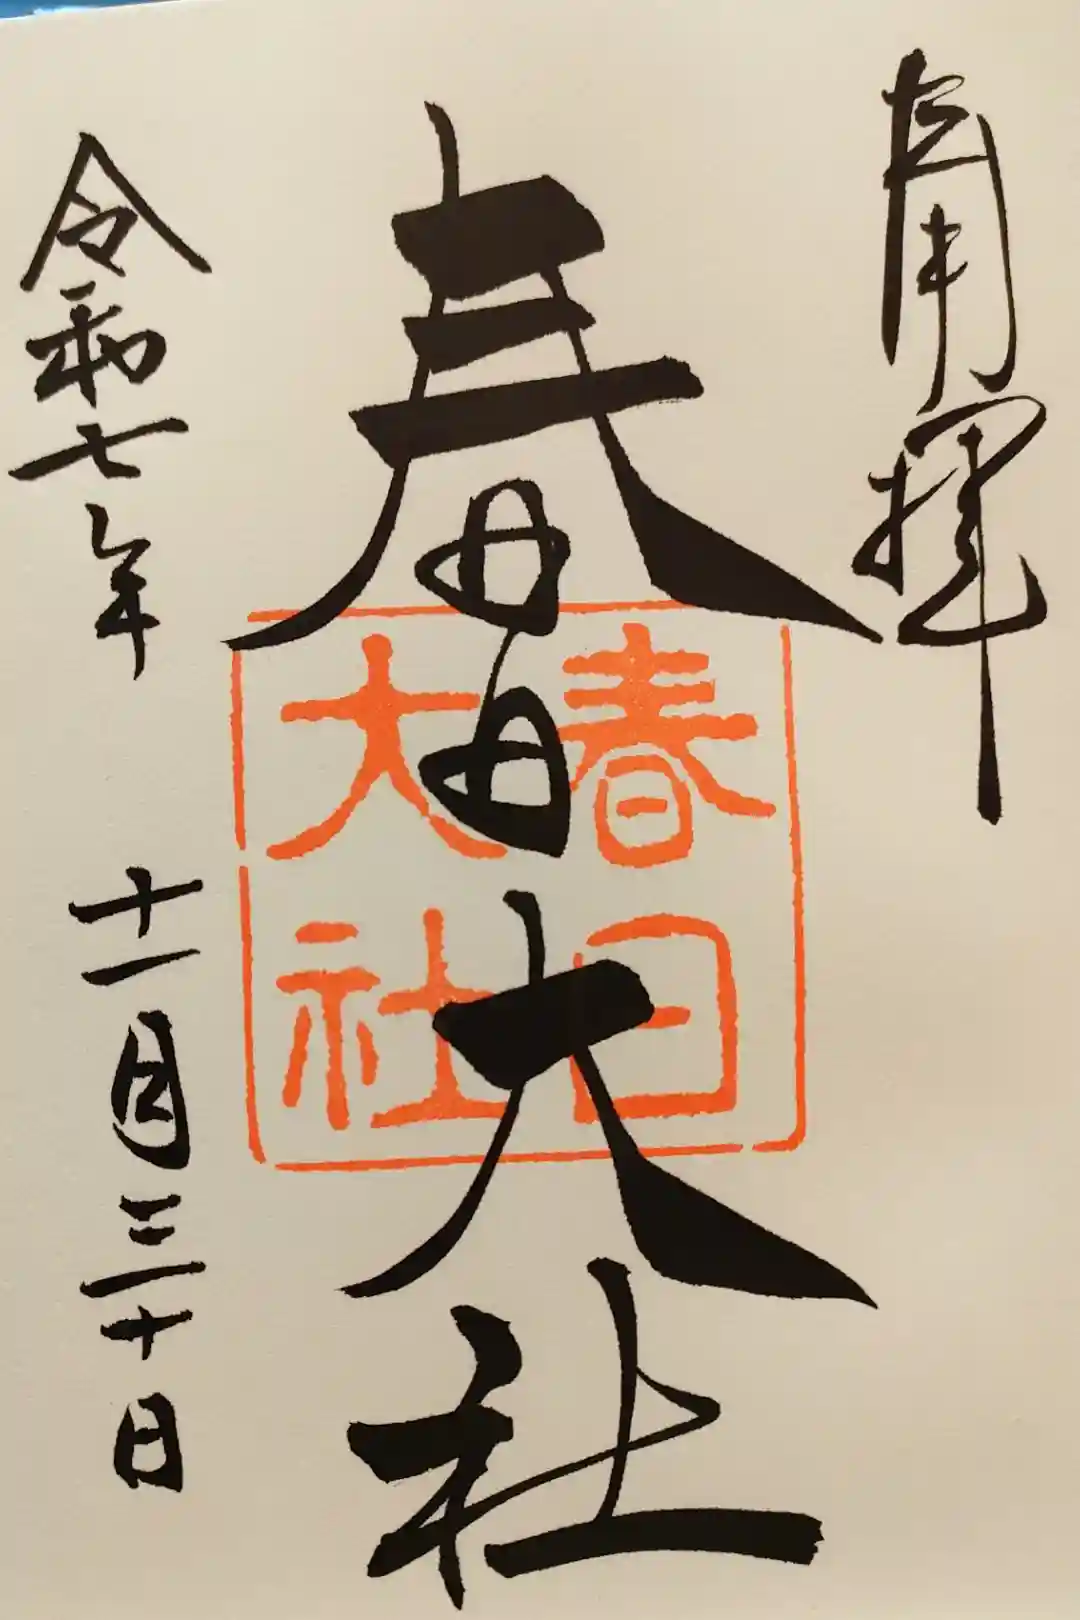 奉拝
春日大社
春日
大社
令和七年 十一月三十日